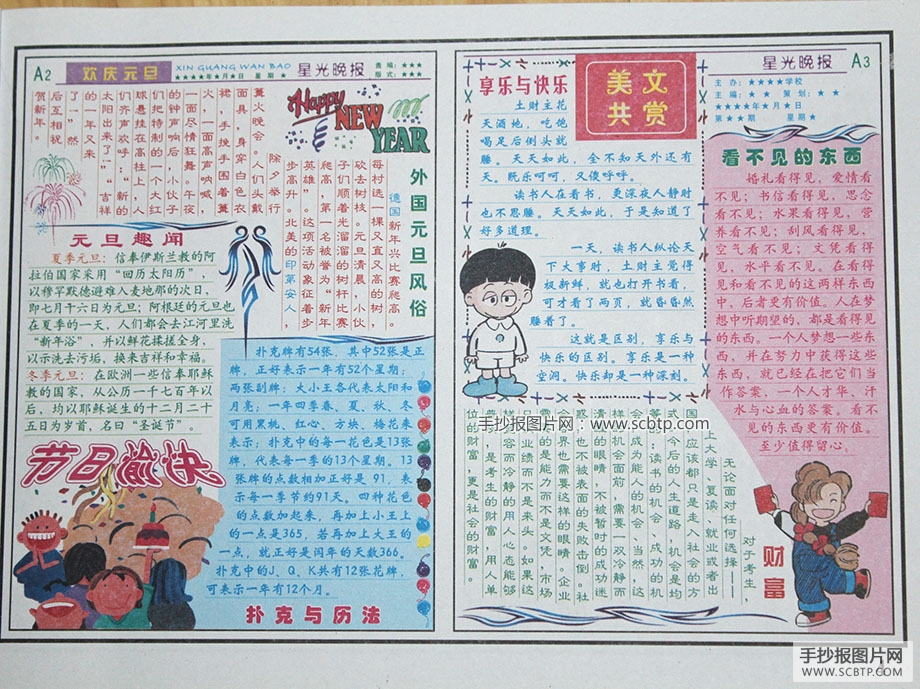 A2
欢庆元旦
XIN GUANG WAN BAO
★★★★年★月★日 星期★
星光晚报
责编：★★★
版式：★★★
Happy
NEW
YEAR
外国元旦风俗
德国新年兴比赛爬高。
每村选一棵又直又高的树，
砍去树枝。元旦清晨，小伙
子们顺着光溜溜的树杆比赛
爬高，第一名被誉为“新年
英雄”。这项活动象征着步
步高升。北美的印第安人，
除夕举行
篝火晚会。人们头戴
面具，身穿白色衣
裙，手挽手围着篝
火，一面高声呐喊，
一面尽情狂舞。午夜
的钟声响后，小伙子
们把特制的一个大红
球悬挂在高柱上，人
们齐声欢呼：“新的
太阳出来了”“吉祥
的一年又来
了”，然
后互相祝
贺新年。
元旦趣闻
夏季元旦：信奉伊斯兰教的阿
拉伯国家采用“回历太阳历”，
以穆罕默德避难入麦地那的次日，
即七月十六日为元旦；阿根廷的元旦也
在夏季的一天，人们都会去江河里洗
“新年浴”，并以鲜花揉搓全身，
以示洗去污垢，换来吉祥和幸福。
冬季元旦：在欧洲一些信奉耶稣
教的国家，从公历一千七百年以
后，均以耶稣诞生的十二月二十
五日为岁首，名曰“圣诞节”。
节日愉快
扑克牌有54张，其中52张是正
牌，正好表示一年有52个星期；
两张副牌：大小王各代表太阳和
月亮；一年四季春、夏、秋、冬
可用黑桃、红心、方块、梅花来
表示；扑克中的每一花色是13张
牌，代表每一季的13个星期。13
张牌的点数相加正好是 91，表
示每一季节约91天。四种花色
的点数加起来，再加上小王上
的一点是365，若再加上大王的
一点，就正好是闰年的天数366。
扑克中的J、Q、K共有12张花牌，
可表示一年有12个月。
扑克与历法
享乐与快乐
土财主花
天酒地，吃饱
喝足后倒头就
睡。天天如此，全不知天外还有
天。既乐呵呵，又傻呼呼。
读书人在看书，更深夜人静时
也不思睡。天天如此，于是知道了
好多道理。
一天，读书人纵论天
下大事时，土财主觉得
极新鲜，就也打开书看，
可才看了两页，就昏昏然
睡着了。
这就是区别，享乐与
快乐的区别。享乐是一种
空洞。快乐却是一种深刻。
美文
共赏
星光晚报
A3
主办：★★★★学校
主编：★ ★ 策划：★ ★
★★★★年★月★日
第★★期 星期★
看不见的东西
婚礼看得见，爱情看
不见；书信看得见，思念
看不见；水果看得见，营
养看不见；刮风看得见，
空气看不见；文凭看得
见，水平看不见。在看得
见和看不见的这两样东西
中，后者更有价值。人在梦
想中听期望的，都是看得见
的东西。一个人梦想一些东
西，并在努力中获得这些
东西，就已经在把它们当
作答案，一个人才华、汗
水与心血的答案。看不
见的东西更有价值。
至少值得留心。
财富
对于考生，
无论面对任何选择——
上大学、复读、就业或者出
国，应该都只是走入社会的方
式。今后的人生道路，机会是均
等的：读书的机会、成功的机
会、成为能人的机会。当然，这
样的机会面前，需要一双冷静而
清醒的眼睛，不被暂时的成功迷
惑，也不被表面的失败击倒。企
业界也需要这样的眼睛。企业
需要的是能力而不是文凭，市场
业绩而不是来头。如果这
样，冷静的用人心态能够
普及，考生的财富，用人单
位的财富，更是社会的财富。
手抄报图片网：www.scbtp.com
手抄报图片网
WWW.SCBTP.COM